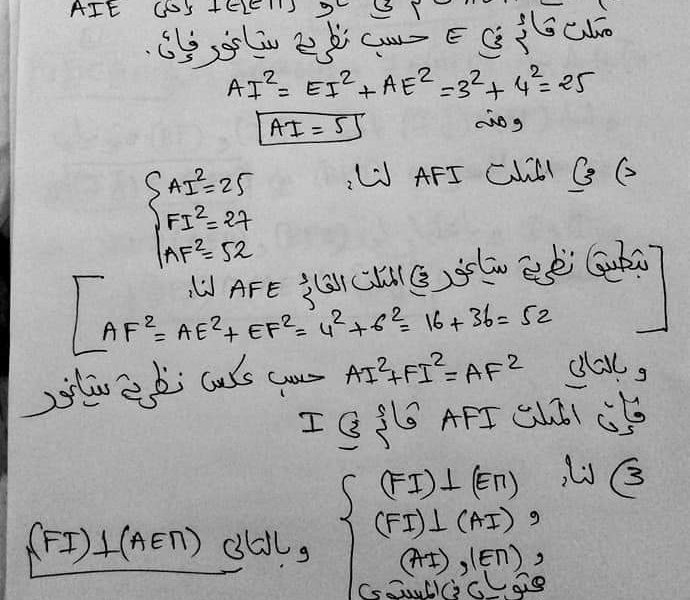 AIE
مثلث قائم في E حسب نظرية بيتاغور فإن.
AI² = EI² + AE² = 3² + 4² = 25
ومنه AI = 5
د) في المثلث AFI لنا،
AI² = 25
FI² = 27
AF² = 52
بتطبيق نظرية بيتاغور في المثلث القائم AFE لنا،
AF² = AE² + EF² = 4² + 6² = 16 + 36 = 52
وبالتالي AI² + FI² = AF² حسب عكس نظرية بيتاغور
فإن المثلث AFI قائم في I
3) لنا، (FI) ⊥ (EΠ)
و (FI) ⊥ (AI)
و (EΠ) و (AI)
محتويان في المستوي
وبالتالي (FI) ⊥ (AEΠ)